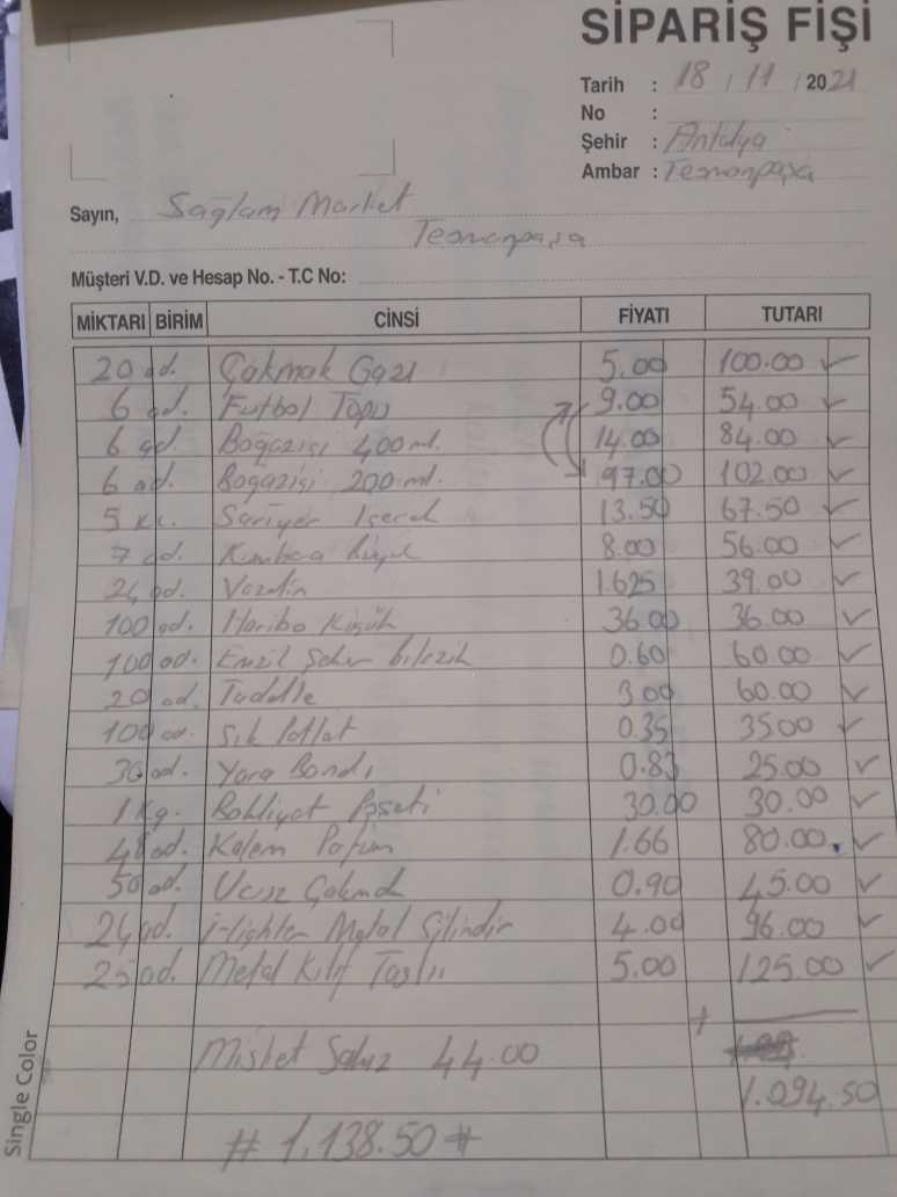 SİPARİŞ FİŞİ
Tarih : 18 / 11 / 2021
No :
Şehir : Antalya
Ambar : Teomanpaşa
Sayın, Sağlam Market
Teomanpaşa
Müşteri V.D. ve Hesap No. - T.C No:
MİKTARI BİRİM CİNSİ FİYATI TUTARI
20 ad. Çakmak Gazı 5.00 100.00 ✓
6 ad. Futbol Topu 9.00 54.00 ✓
6 ad. Boğaziçi 400 ml. 14.00 84.00 ✓
6 ad. Bogaziçi 200 ml. 97.00 102.00 ✓
5 Sarıyer 13.50 67.50 ✓
7 ad. Kumbara 8.00 56.00 ✓
24 ad. 1.625 39.00 ✓
100 ad. Haribo Küçük 36.00 36.00 ✓
100 ad. Emzik Şeker bilezik 0.60 60.00 ✓
20 ad. Tadelle 3.00 60.00 ✓
100 ad. Sık Patlat 0.35 35.00 ✓
30 ad. Yara Bandı 0.83 25.00 ✓
1 Kg. Bakliyat Poşeti 30.00 30.00 ✓
48 ad. Kalem Pafüm 1.66 80.00 ✓
50 ad. Ucuz Çakmak 0.90 45.00 ✓
24 ad. Metal Silindir 4.00 96.00 ✓
25 ad. Metal Kılıf Taşlı 5.00 125.00 ✓
+
Misket 44.00
1.094.50
# 1.138.50 #
Single Color